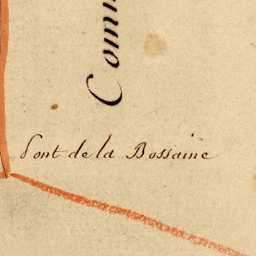 Com
Pont de la Bossaine